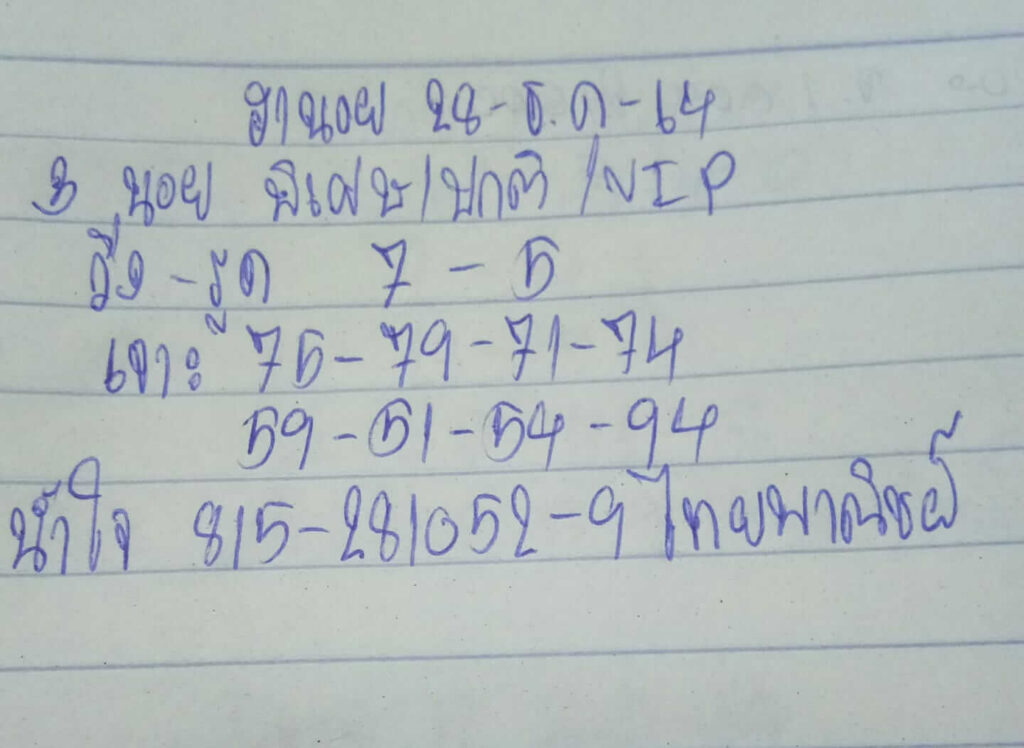 ฮานอย 28-ธ.ค-64
3 นอย พิเศษ/ปกติ/VIP
วิ่ง-รูด 7-5
เจาะ 75-79-71-74
59-51-54-94
น้ำใจ 815-281052-9 ไทยพาณิชย์